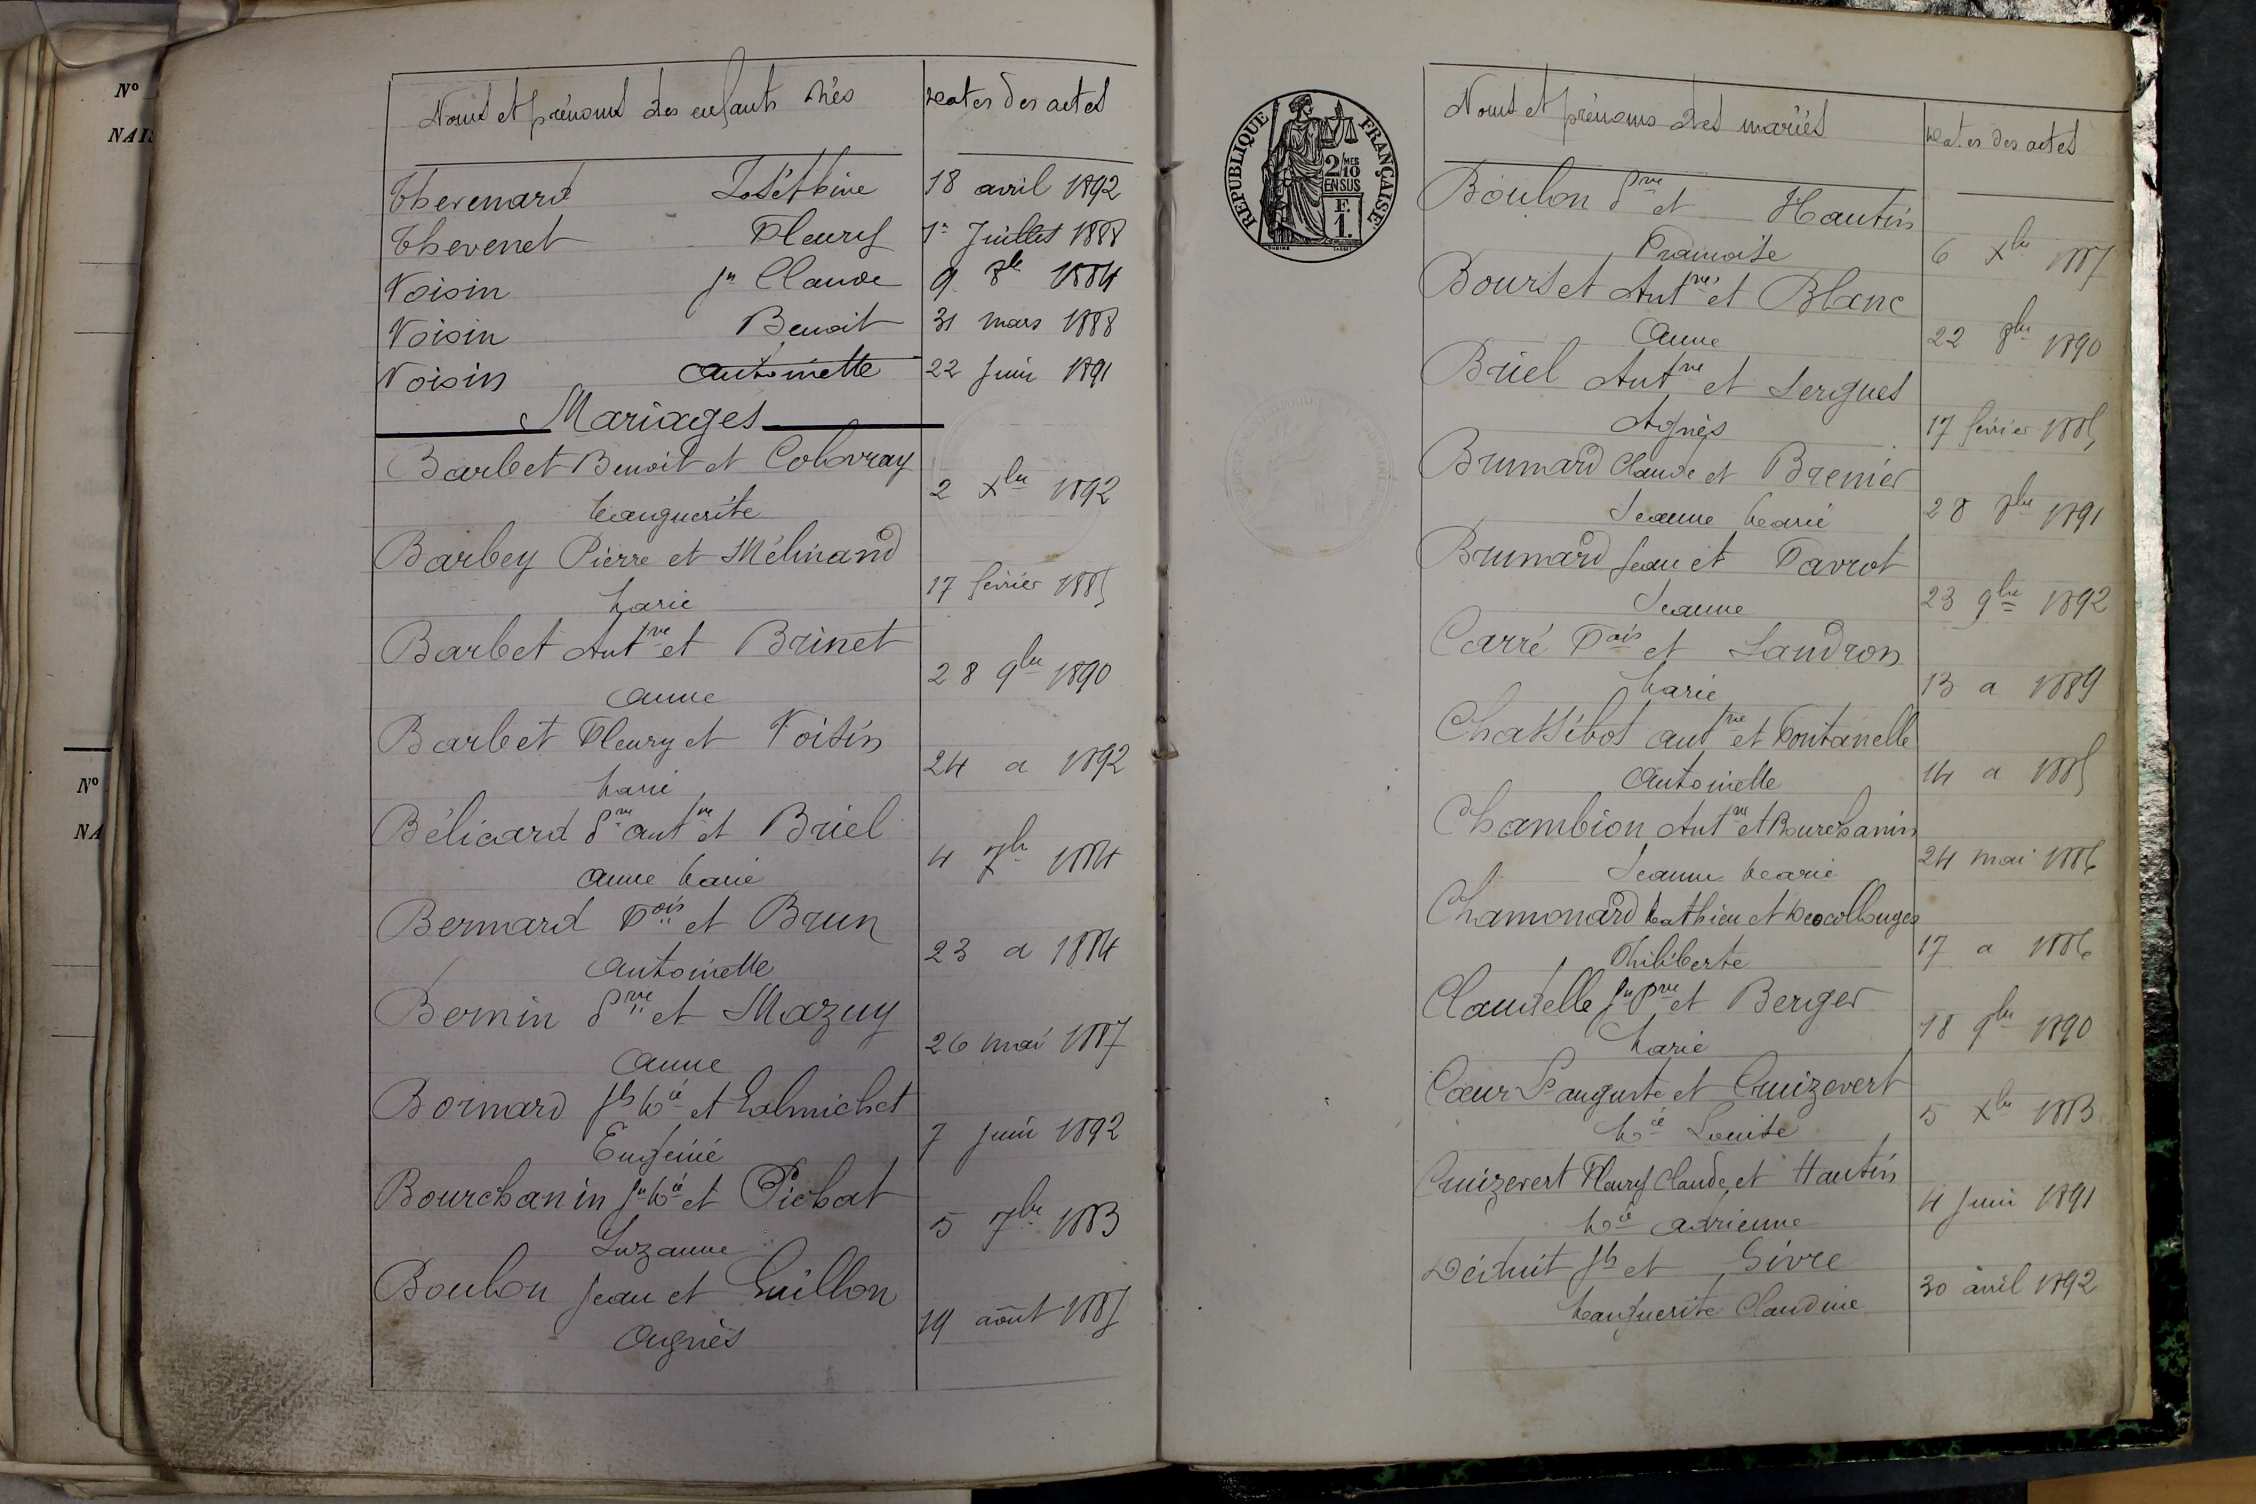 Nº
NAIS
Nº
NA
Noms et prénoms des enfants Nés Dates des actes
Thevenard Joséphine 18 avril 1892
Thevenet Fleury 1er Juillet 1888
Voisin Jn Claude 9 8bre 1884
Voisin Benoit 31 mars 1888
Voisin Antoinette 22 Juin 1891
Mariages
Barbet Benoit et Colovray
Marguerite 2 Xbre 1892
Barbey Pierre et Mélinand
Marie 17 février 1885
Barbet Antne et Brinet
Anne 28 9bre 1890
Barbet Fleury et Voisin
Marie 24 a 1892
Bélicard Pre Antne et Briel
Anne Marie 4 7bre 1884
Bernard Fois et Brun
Antoinette 23 a 1884
Bernin Pre et Mazuy
Anne 26 mai 1887
Boinard Jh Mié et
Eugénie 7 Juin 1892
Bourchanin Jn Mié et Pichat
Suzanne 5 7bre 1883
Boulon Jean et Guillon
Agnès 19 août 1885
RÉPUBLIQUE FRANÇAISE
2/10 MES
EN SUS
F.
1.
Noms et prénoms des mariés Dates des actes
Boulon Pre et Hautin
Françoise 6 Xbre 1887
Bourset Antne et Blanc
Anne 22 8bre 1890
Briel Antne et Sergues
Agnès 17 février 1885
Brunard Claude et Brenier
Jeanne Marie 28 8bre 1891
Brunard Jean et Favrot
Jeanne 23 9bre 1892
Carré Fois et Landron
Marie 13 a 1889
Chassibot Antne et Fontanelle
Antoinette 14 a 1885
Chambion Antne et Bourchanin
Jeanne Marie 24 mai 1886
Chamonard Mathieu et Descollonges
Philiberte 17 a 1886
Claudelle Jn Pre et Berger
Marie 18 9bre 1890
Cœur Ls auguste et Cruizevert
Mie Louise 5 Xbre 1883
Cruizevert Fleury Claude et Hautin
Mie Adrienne 4 Juin 1891
Déduit Jh et Sivre
Marguerite Claudine 30 avril 1892